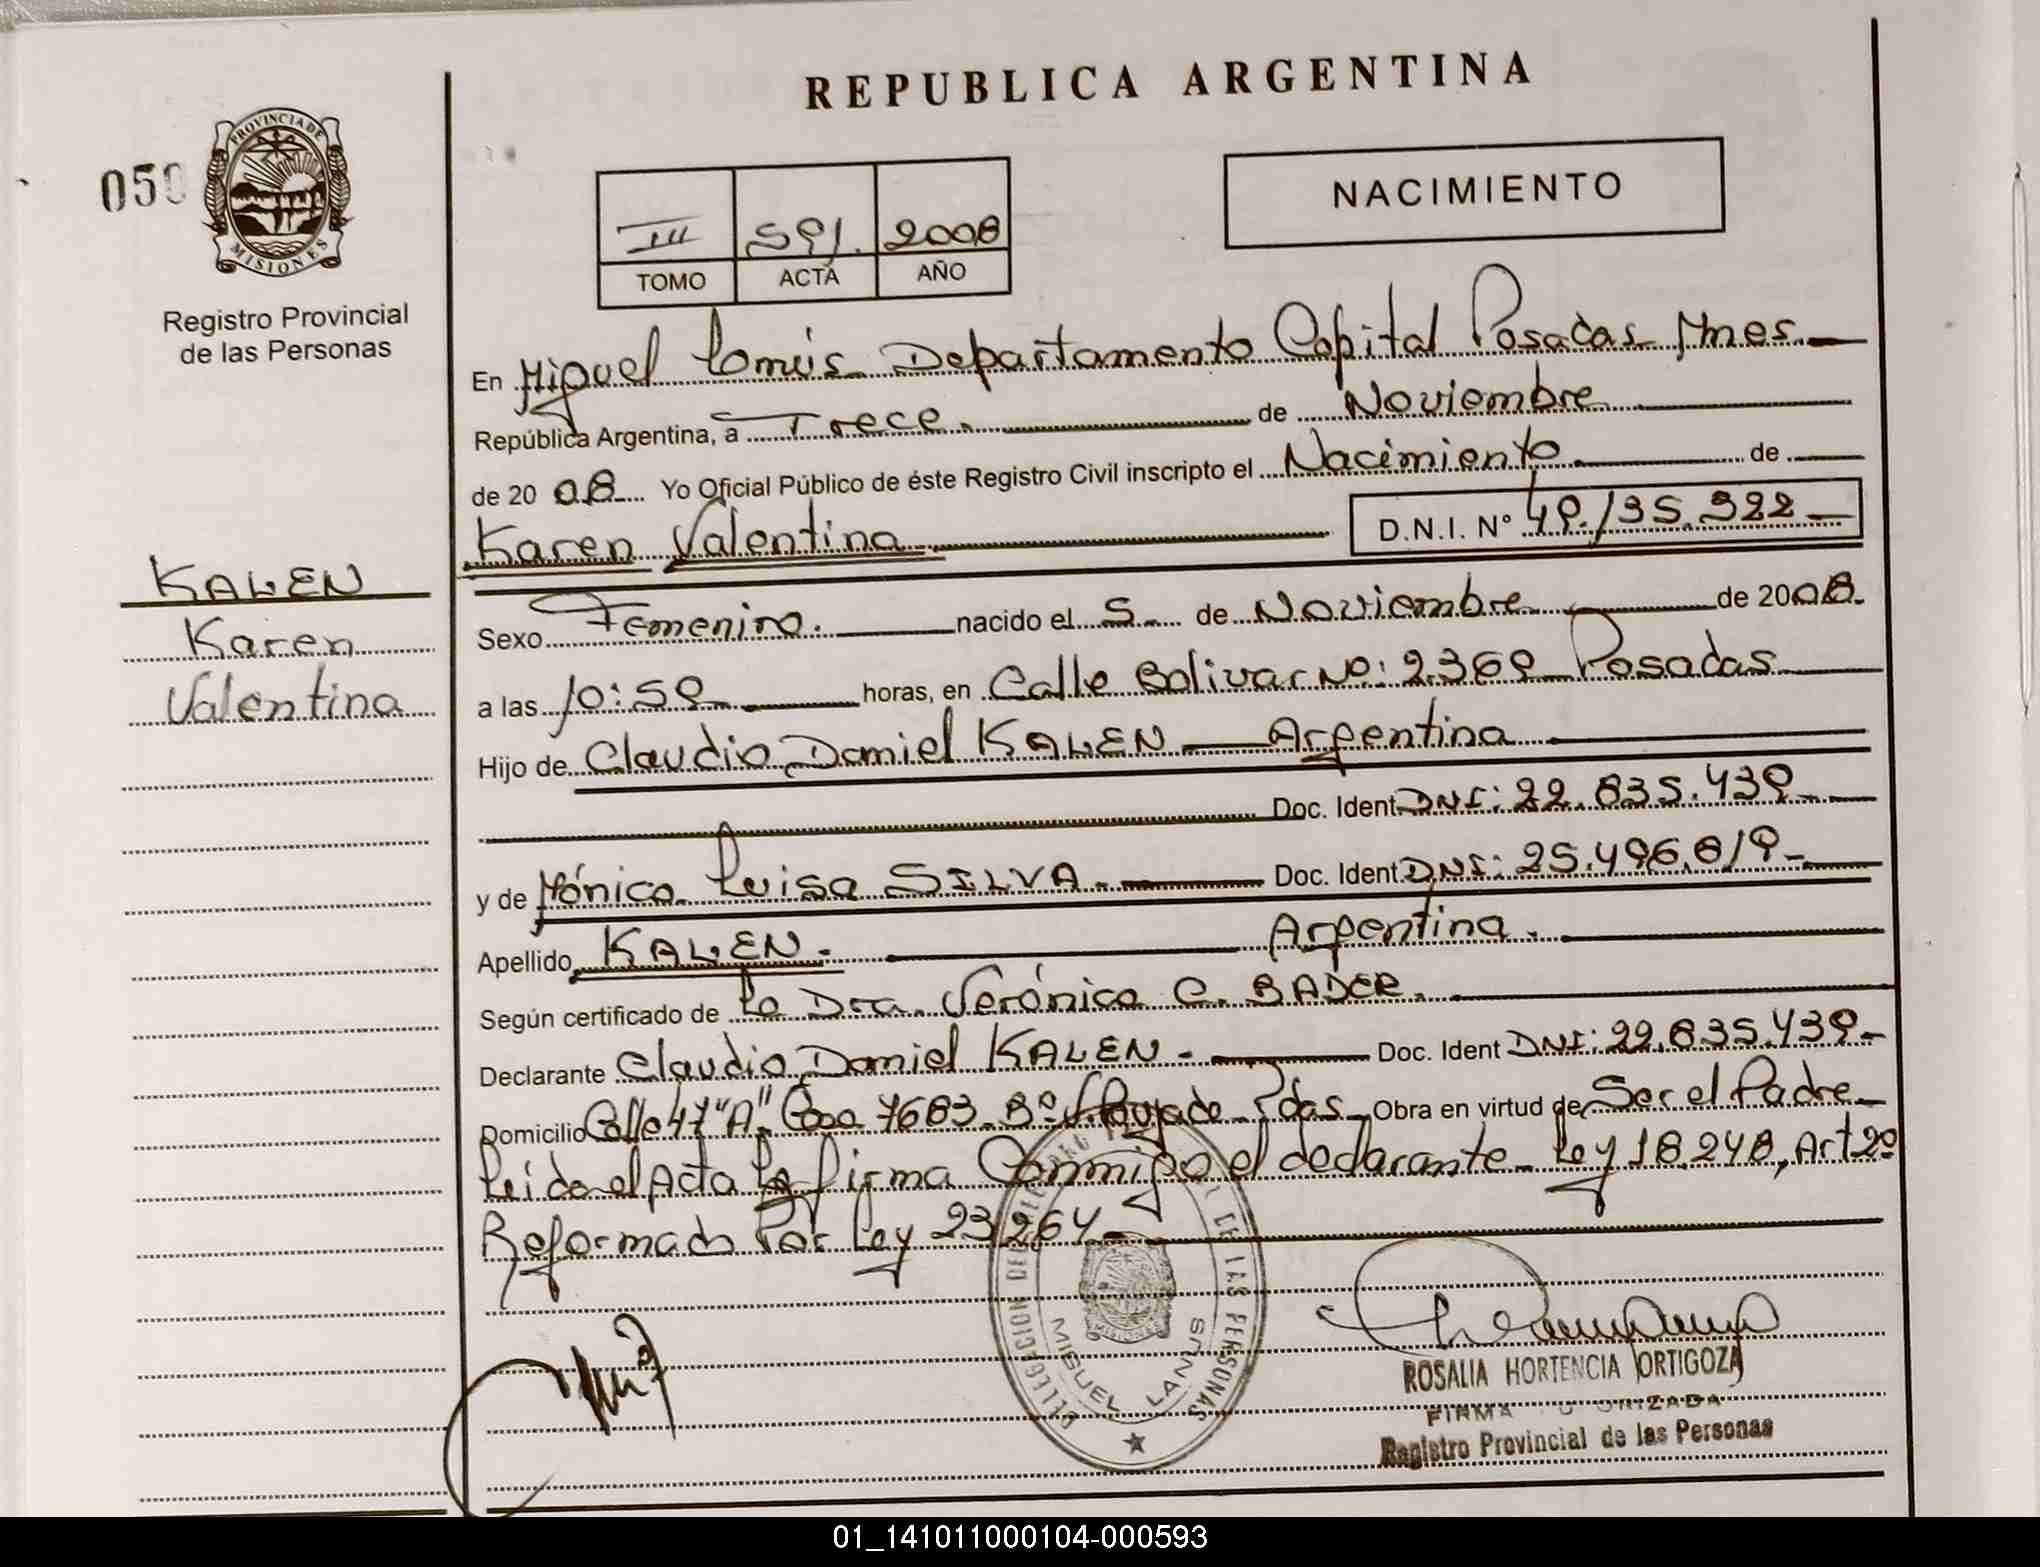 REPUBLICA ARGENTINA
050
PROVINCIA DE
MISIONES
Registro Provincial
de las Personas
NACIMIENTO
III 591. 2008
TOMO ACTA AÑO
En Miguel Lanús Departamento Capital Posadas Mnes.
República Argentina, a Trece. de Noviembre
de 2008 Yo Oficial Público de éste Registro Civil inscripto el Nacimiento de
Karen Valentina D.N.I. N° 49.135.322
KALEN
Karen
Valentina
Sexo Femenino. nacido el 5 de Noviembre de 2008.
a las 10:59 horas, en Calle Bolivar No: 2.369 Posadas
Hijo de Claudio Daniel KALEN Argentina
Doc. Ident DNI: 22.835.439
y de Mónica Luisa SILVA. Doc. Ident DNI: 25.496.819
Apellido KALEN. Argentina.
Según certificado de La Dra. Verónica C. BADER.
Declarante Claudio Daniel KALEN. Doc. Ident DNI: 22.835.439
Domicilio Calle 47 "A" Casa 7683 Bº Pdas Obra en virtud de Ser el Padre
Leida el Acta La firma Conmigo el declarante Ley 18.248, Art 2º
Reformado Por Ley 23.264
DELEGACION DE LAS PERSONAS
MIGUEL LANUS
MISIONES
ROSALIA HORTENCIA ORTIGOZA
FIRMA AUTORIZADA
Registro Provincial de las Personas
01_141011000104-000593